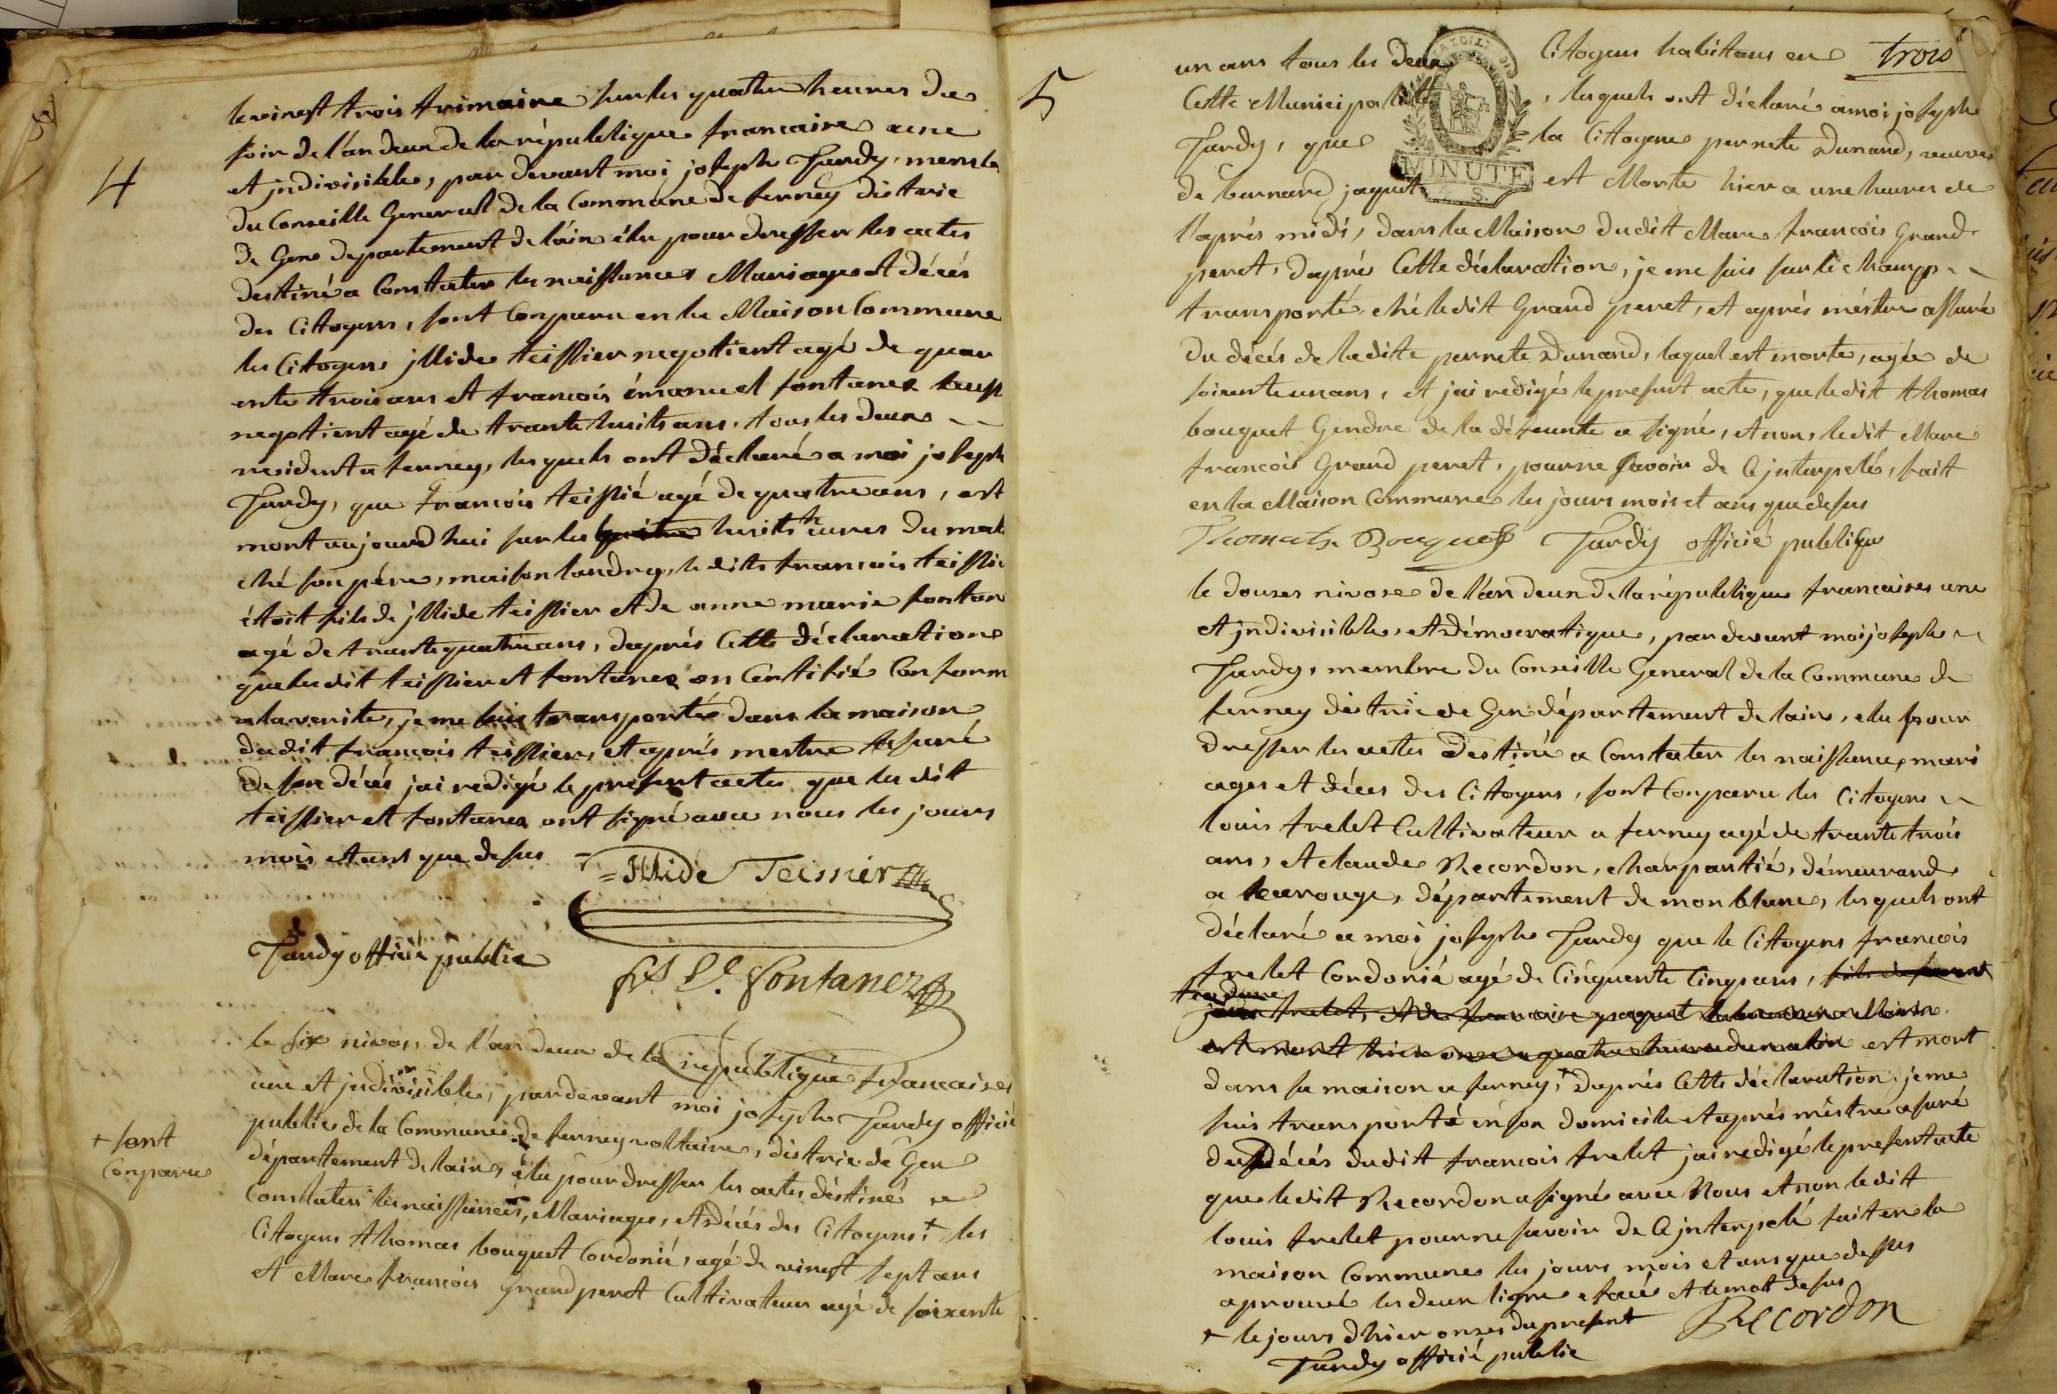 4
le vingt trois trimaire sur les quatre heures du
soir de l'an deux de la république francaise une
et jndivisible, par devant moi joseph Tardy, memb
du Conseille General de la Commune de ferney distric
de Gex departement de l'ain élu pour dresser les actes
destiné a Constater les naissances Mariages et décés
des Citoyens, sont Conparu en la Maison Commune
les Citoyens jllide teissier negotient agé de quar
ente trois ans et francois émanuel fontanes aussi
negotient agé de trante huits ans, tous les deux
resident a ferney, les quels ont déclaré a moi joseph
Tardy, que francois teissié agé de quatre ans, est
mort aujourd hui sur les huits heures du mat
ché son pére, maison landry, le dits francois teissie
étoit fils de jllide teissier et de anne marie fontan
agé de trante quatre ans, daprés Cette déclaration
que les dit teissier et fontanes on Certifié Conform
a la verité, je me suis transporté dans la maison
du dit francois teissier, et aprés mestre assuré
de son décés jai redigé le present actes que les dit
teissier et fontanes ont signé avec nous les jours
mois et ans que desus
Jllide Teissier
Tardy officié public
fs E. Fontanez
le six nivos de l'an deux de la république francaises
une et jndivisible, par devant moi joseph Tardy officié
public de la Commune de ferney voltaire, distric de Gex
+ sont
Conparu
département de lain, élu pour dresser les actes déstiné a
Constater les naissances, Mariages, et décés des Citoyens + les
Citoyens thomas bouquet Cordonié, agé de vingt sept ans
et Marc francois grand peret Cultivateur agé de soixente
trois
5
un ans tous les deux Citoyens habitans en
Cette Municipalité, lesquels ont déclaré a moi joseph
Tardy, que la Citoyene pernete Dunand, veuve
MINUTE
de bernard jaquet est Morte hier a une heures de
l'aprés midi, dans la Maison dudit Marc francois Grand
peret, daprés Cette déclaration, je me suis sur le champ
transporté, ché ledit Grand peret, et aprés méstre assuré
du décés de ladite pernete Dunand, laquel est morte, agée de
soixente un ans, et jai redigé le present acte, que ledit thomas
bouquet Gendre de la défeunte a signé, et non, ledit Marc
francois Grand peret, pour ne savoir de Ce jnterpelé, fait
en la Maison Commune les jours mois et ans que desus
Thomas Bouquet Tardy officié publique
le douzes nivose de l'an deux de la république francaises une
et jndivisible, et démocratique, par devant moi joseph
Tardy, membre du Conseille General de la Commune de
ferney distric de Gex département de lain, élu pour
dresser les actes destiné a Constater les naissances, mari
ages et décés des Citoyens, sont Conparu les Citoyens
louis trelet Cultivateur a ferney agé de trante trois
ans, et claude Recordon, charpantié, démeurand
a Carouge, département de mon blanc, les quels ont
déclaré a moi joseph Tardy que le Citoyens francois
trelet Cordonié agé de Cinquente Cinq ans,
est mort
dans sa maison a ferney, + daprés Cette déclaration, je me
suis transporté en son domicile et aprés méstre assuré
du décés dudit francois trelet jai redigé le present acte
que ledit Recordon a signé avec Nous et non ledit
louis trelet pour ne savoir de Ce jnterpelé fait en la
maison Commune les jours mois et ans que desus
aprouvé les deux ligne efacé et le mot desus
+ le jours dhier onzes du present Recordon
Tardy officié public